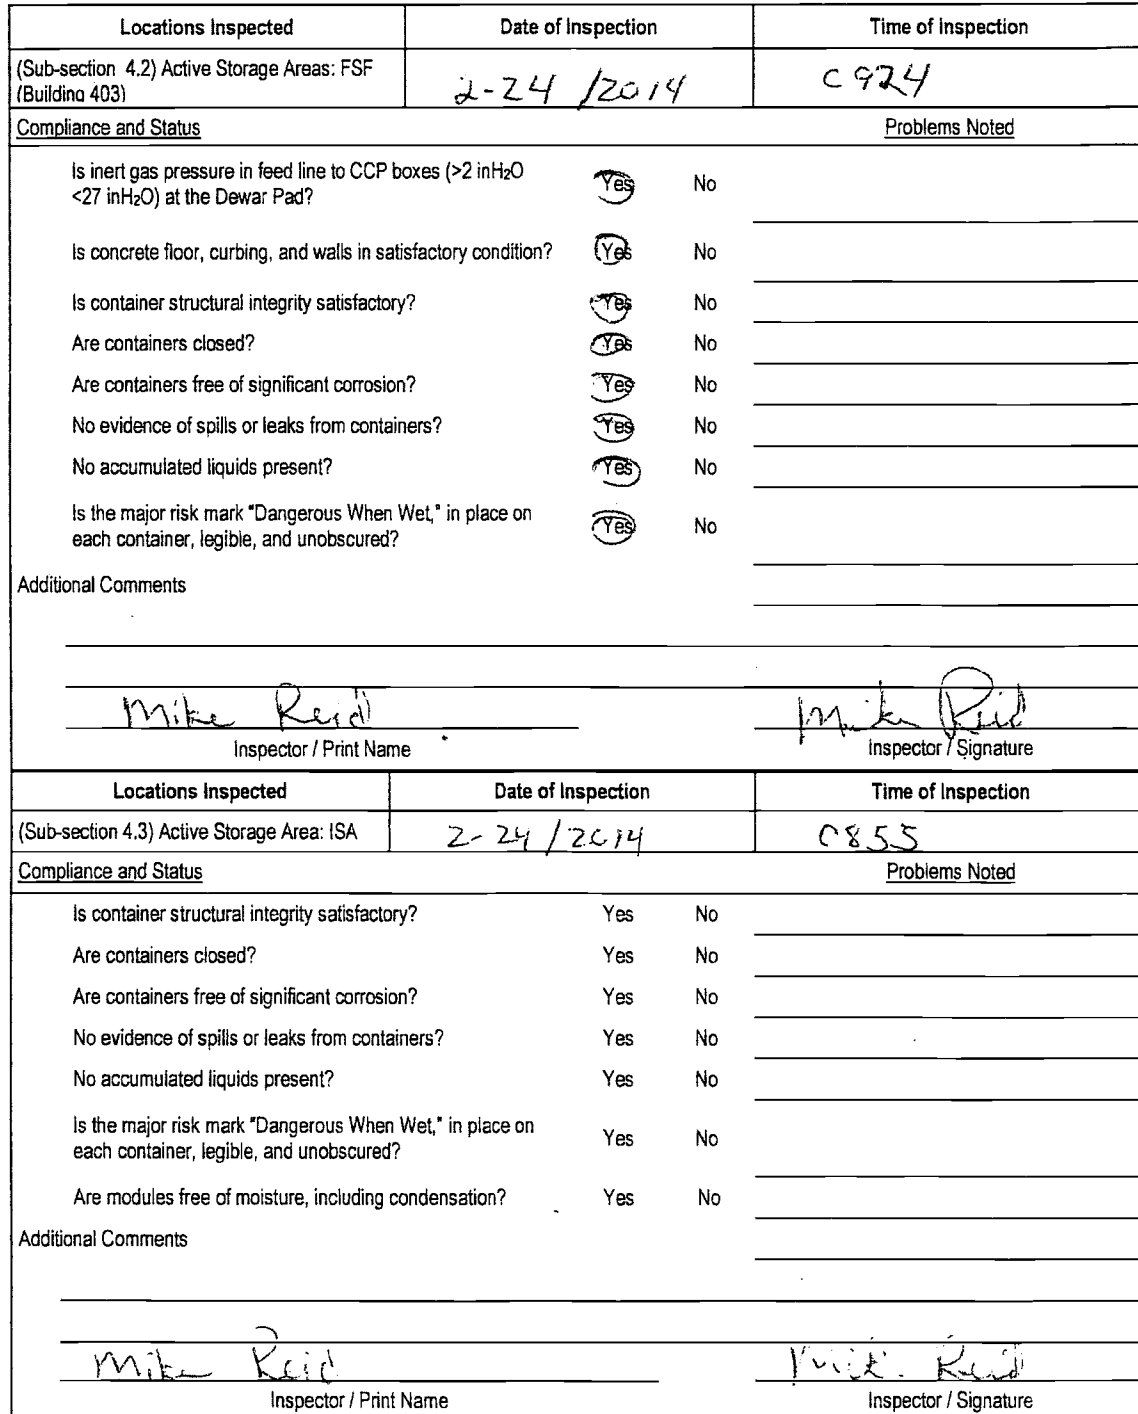 Locations Inspected Date of Inspection Time of Inspection
(Sub-section 4.2) Active Storage Areas: FSF
(Building 403) 2-24/2014 0924
Compliance and Status Problems Noted
Is inert gas pressure in feed line to CCP boxes (>2 inH2O
<27 inH2O) at the Dewar Pad? Yes No
Is concrete floor, curbing, and walls in satisfactory condition? Yes No
Is container structural integrity satisfactory? Yes No
Are containers closed? Yes No
Are containers free of significant corrosion? Yes No
No evidence of spills or leaks from containers? Yes No
No accumulated liquids present? Yes No
Is the major risk mark "Dangerous When Wet," in place on
each container, legible, and unobscured? Yes No
Additional Comments
Mike Reid Mike Reid
Inspector / Print Name Inspector / Signature
Locations Inspected Date of Inspection Time of Inspection
(Sub-section 4.3) Active Storage Area: ISA 2-24/2014 0855
Compliance and Status Problems Noted
Is container structural integrity satisfactory? Yes No
Are containers closed? Yes No
Are containers free of significant corrosion? Yes No
No evidence of spills or leaks from containers? Yes No
No accumulated liquids present? Yes No
Is the major risk mark "Dangerous When Wet," in place on
each container, legible, and unobscured? Yes No
Are modules free of moisture, including condensation? Yes No
Additional Comments
Mike Reid Mike Reid
Inspector / Print Name Inspector / Signature